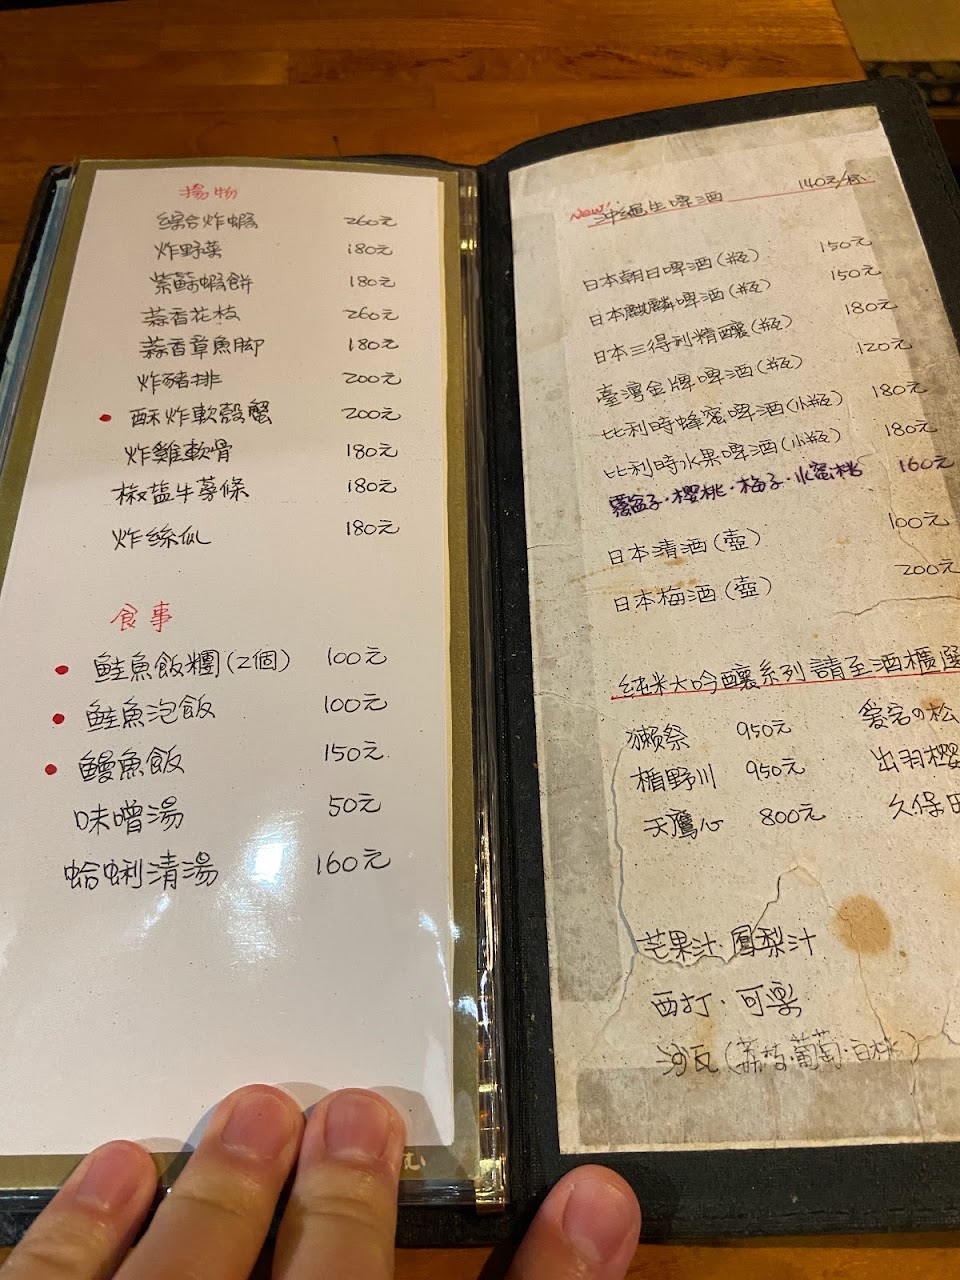 揚物
綜合炸蝦 260元
炸野菜 180元
紫蘇蝦餅 180元
蒜香花枝 260元
蒜香章魚腳 180元
炸豬排 200元
酥炸軟殼蟹 200元
炸雞軟骨 180元
椒塩牛蒡條 180元
炸絲仙 180元
食事
鮭魚飯糰(2個) 100元
鮭魚泡飯 100元
鰻魚飯 150元
味噌湯 50元
蛤蜊清湯 160元
New! 沖繩生啤酒 140元/杯
日本朝日啤酒(瓶) 150元
日本麒麟啤酒(瓶) 150元
日本三得利精釀(瓶) 180元
臺灣金牌啤酒(瓶) 120元
比利時蜂蜜啤酒(小瓶) 180元
比利時水果啤酒(小瓶) 180元
覆盆子·櫻桃·梅子·水蜜桃 160元
日本清酒(壺) 100元
日本梅酒(壺) 200元
純米大吟釀系列 請至酒櫃選
獺祭 950元 愛宕の松
楯野川 950元 出羽櫻
天鷹心 800元 久保田
芒果汁·鳳梨汁
西打·可樂
沙瓦(荔枝·葡萄·白桃)
む